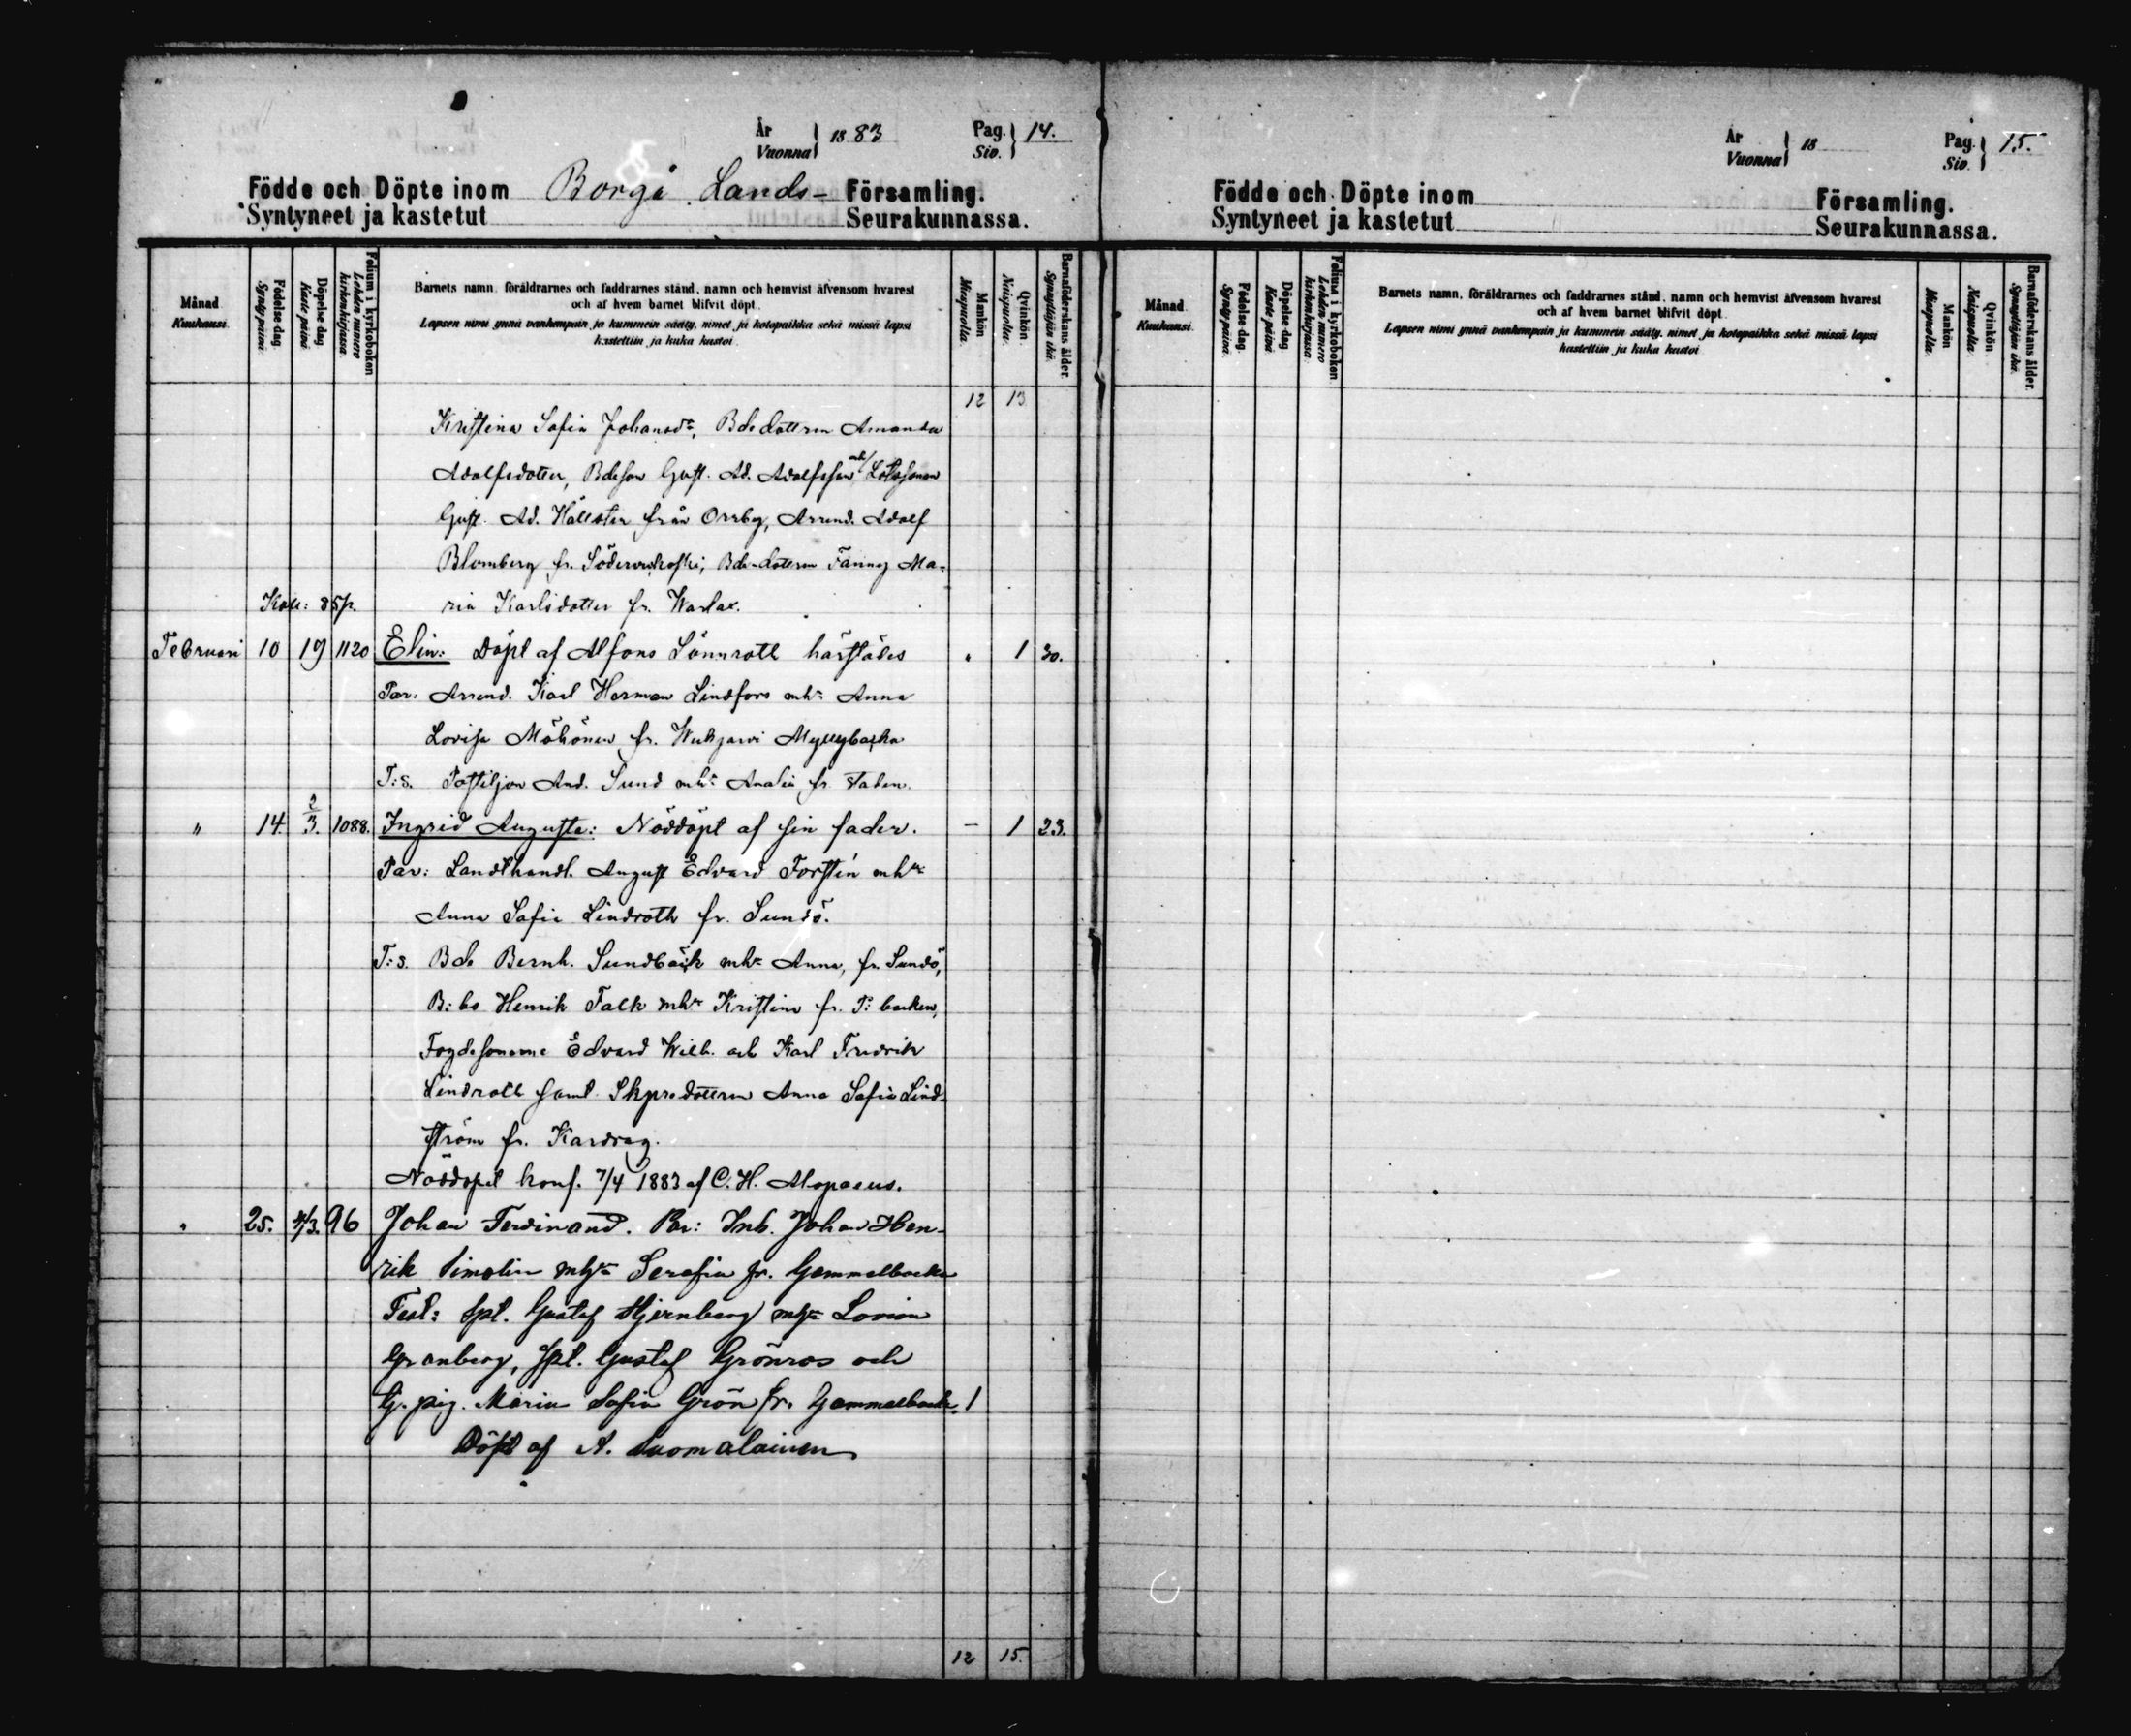 År 1883 Pag. 14.
Vuonna Siv.
Födde och Döpte inom Borgå Lands- Församling.
Syntyneet ja kastetut Seurakunnassa.
Månad Kuukausi.
Födelse-dag. Synty päinä.
Döpelse-dag Kaste päinä
Folium i kyrkoboken Lehden numero kirkonkirjassa.
Barnets namn, föräldrarnes och faddrarnes stånd, namn och hemvist äfvensom hvarest
och af hvem barnet blifvit döpt.
Lapsen nimi ynnä vanhempain ja kummein sääty, nimet ja kotopaikka sekä missä lapsi
kastettiin ja kuka kastoi.
Mankön Miespuolia.
Qvinkön. Naispuolia.
Barnaföderskans ålder. Synnyttäjän ikä.
12 13
Kristina Sofia Johansdr, Bdedottren Amanda
Adolfsdotter, Bdeson Gust. Ad. Adolfsson och/ Lotssonen
Gust. Ad. Hällsten från Orrby, Arrend. Adolf
Blomberg fr. Söderveckoski, Bde-dottren Fanny Ma-
Koll: 85 p. ria Karlsdotter fr. Warlax.
Februari 10 19 1120 Elin: Döpt af Alfons Lönnroth härstädes . 1 30.
Par: Arrend. Karl Herman Lindfors mhr Anna
Lovisa Möhönen fr. Wekjärvi Myllybacka
T:s. Postiljon And. Sund mhr Amalia fr. staden.
" 14. 2/3. 1088. Ingrid Augusta: Nöddöpt af sin fader. — 1 23.
Par: Landthandl. August Edvard Forstén mhr
Anna Sofia Lindroth fr. Sundö.
T:s. Bde Bernh. Sundbäck mhr Anna, fr. Sundö,
B:bo Henrik Falk mhr Kristina fr. P: backen,
Fogdesönerne Edvard Wilh. och Karl Fredrik
Lindroth samt Skpredottren Anna Sofia Lind-
ström fr. Kardrag.
Nöddopet konf. 7/4 1883 af C. H. Alopaeus.
" 25. 4/3. 96 Johan Ferdinand. Par: Inh. Johan Hen-
rik Simolin mhr Serafia fr. Gammelbacka
Test: Spl. Gustaf Hjernberg mhr Lovisa
Granberg, Spl. Gustaf Grönroos och
G. pig. Maria Sofia Grön fr. Gammelbacka. 1
Döpt af A. Suomalainen
12 15.
År 18 Pag. 15.
Vuonna Siv.
Födde och Döpte inom Församling.
Syntyneet ja kastetut Seurakunnassa.
Månad. Kuukausi.
Födelse-dag. Synty päinä.
Döpelse-dag Kaste päinä
Folium i kyrkoboken Lehden numero kirkonkirjassa.
Barnets namn, föräldrarnes och faddrarnes stånd, namn och hemvist äfvensom hvarest
och af hvem barnet blifvit döpt.
Lapsen nimi ynnä vanhempain ja kummein sääty, nimet ja kotopaikka sekä missä lapsi
kastettiin ja kuka kastoi.
Mankön Miespuolia.
Qvinkön. Naispuolia.
Barnaföderskans ålder. Synnyttäjän ikä.